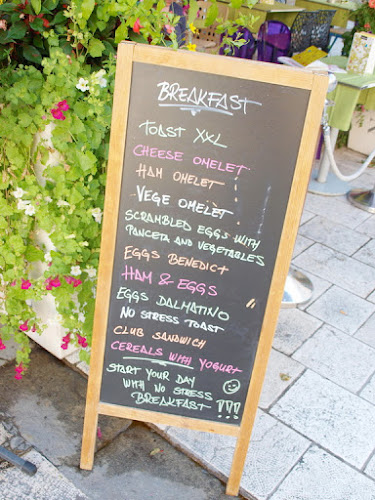 BREAKFAST
TOAST XXL
CHEESE OMELET
HAM OMELET
VEGE OMELET
SCRAMBLED EGGS WITH
PANCETA AND VEGETABLES
EGGS BENEDICT
HAM & EGGS
EGGS DALMATINO
NO STRESS TOAST
CLUB SANDWICH
CEREALS WITH YOGURT
START YOUR DAY
WITH NO STRESS
BREAKFAST !!!